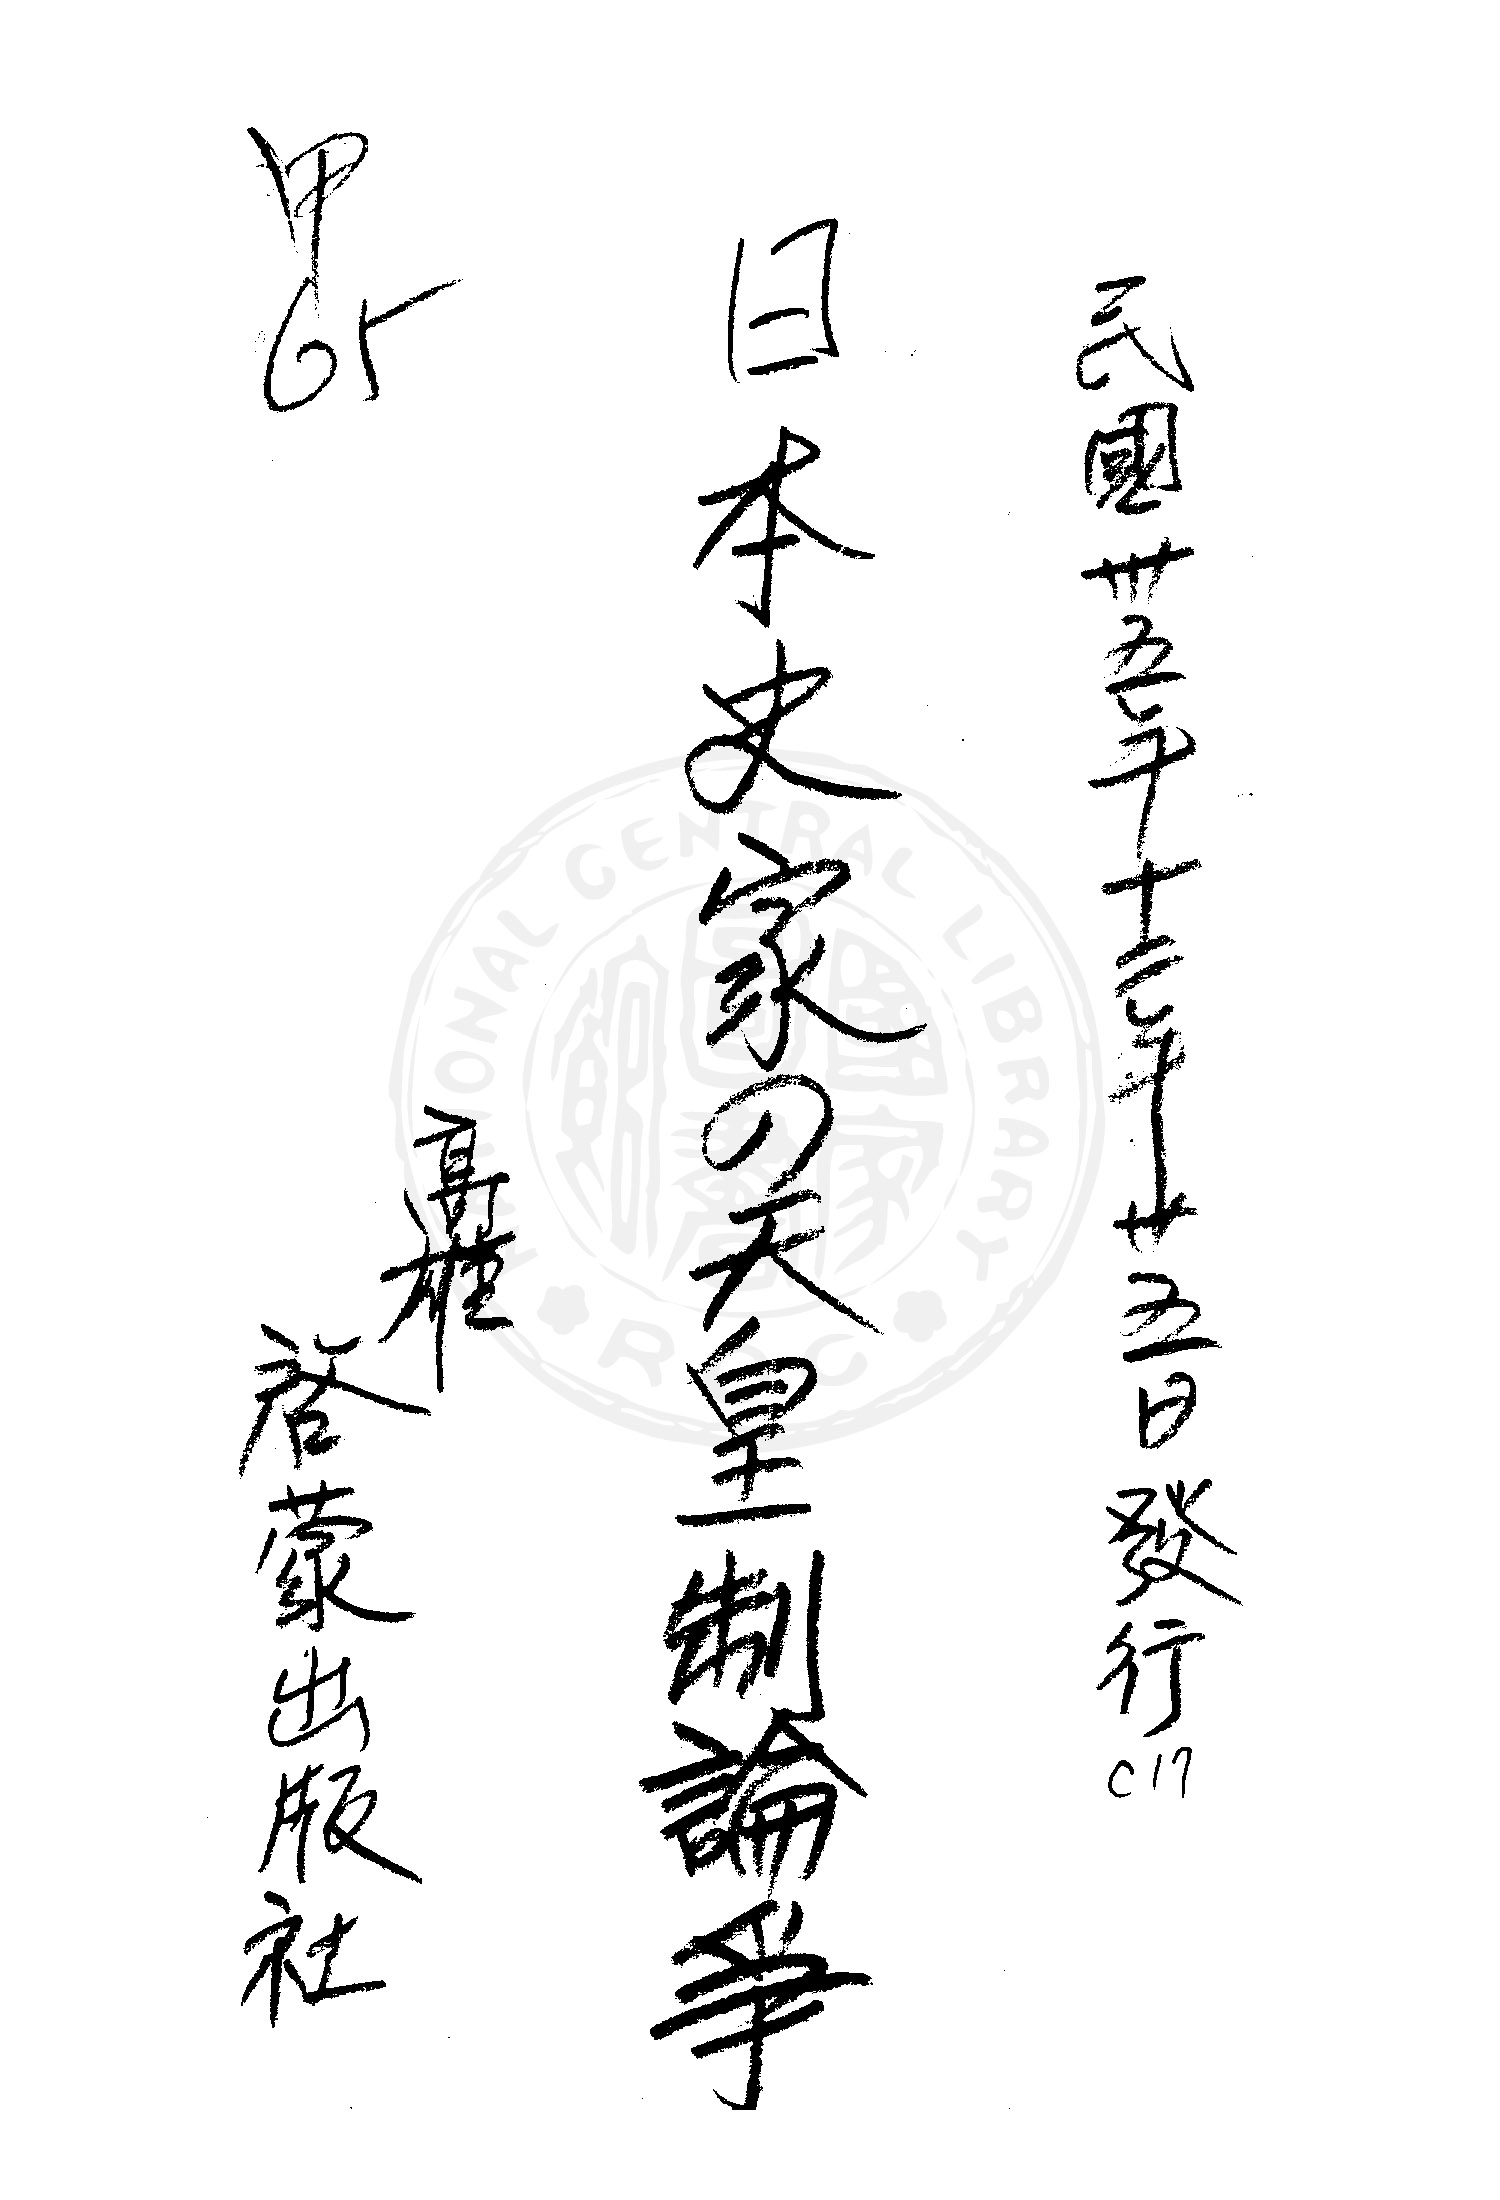 民國卅五年十二月廿五日發行 C17
日本史家の天皇制論爭
高雄
啓蒙出版社
甲65
NATIONAL CENTRAL LIBRARY
R.O.C
國家圖書館